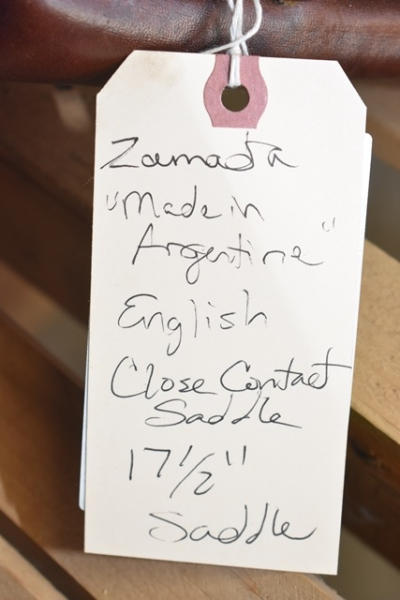 Zamada
"Made in
Argentina"
English
Close Contact
Saddle
17 1/2"
Saddle